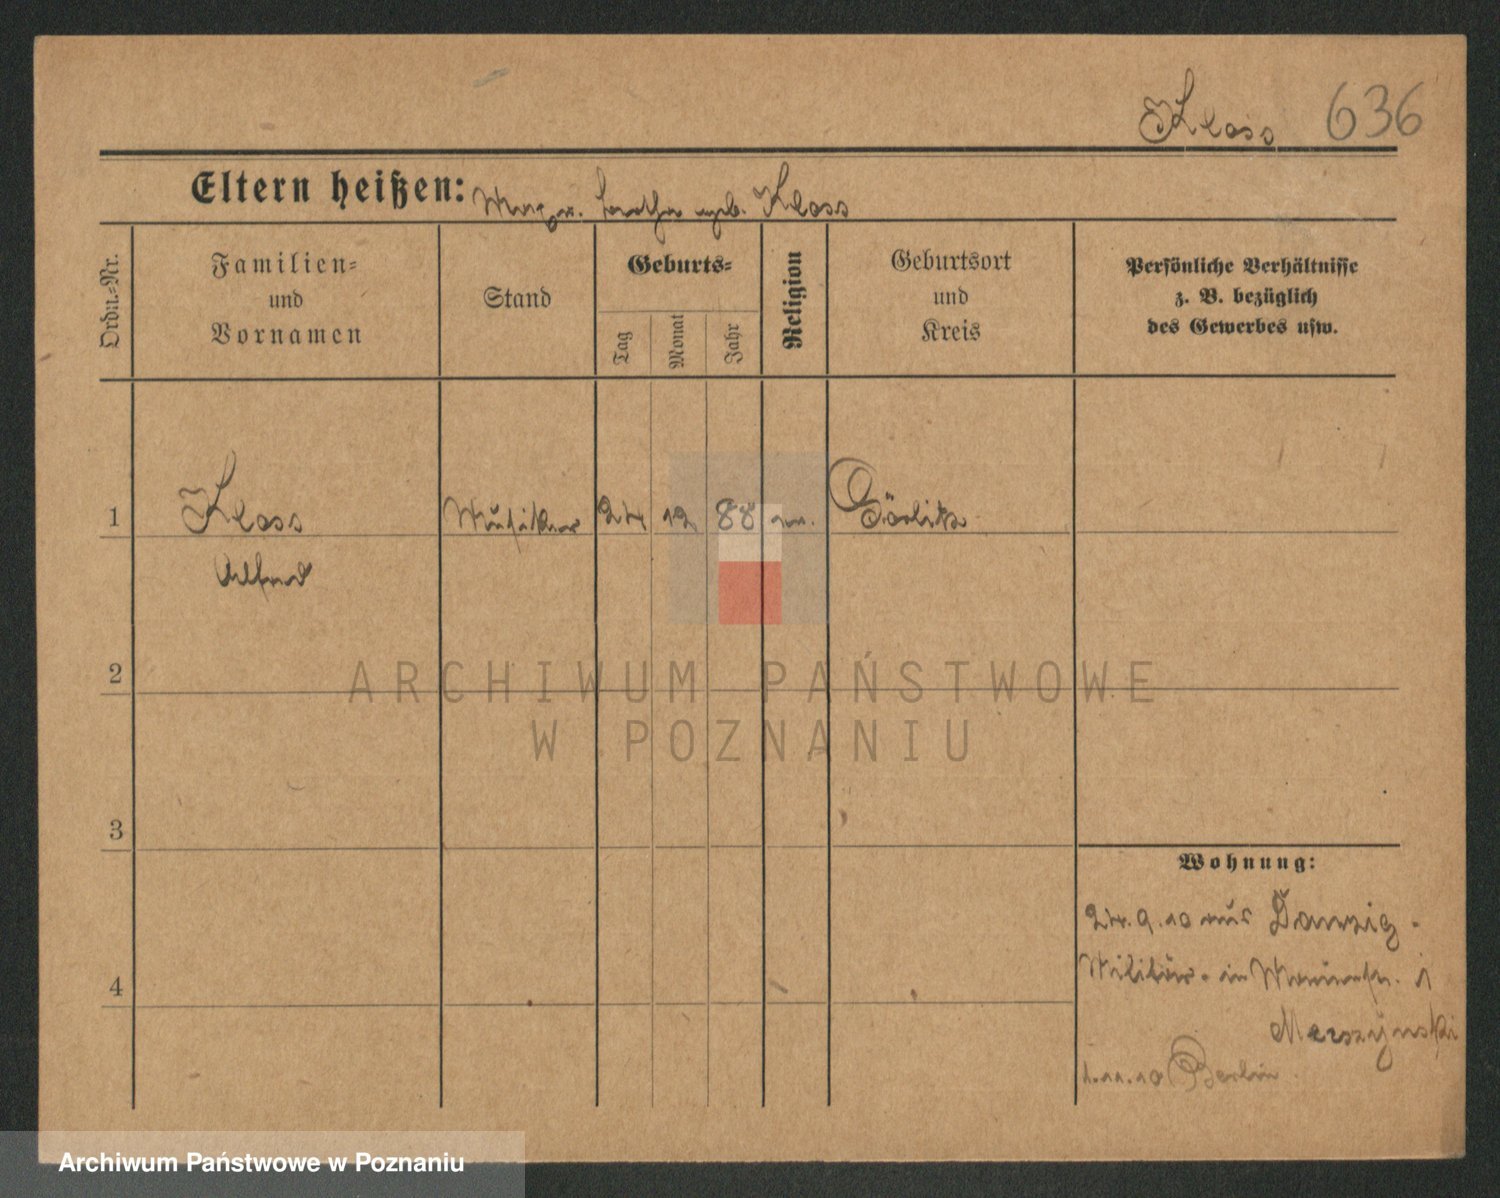 Klass 636
Eltern heißen: geb. Klass
Ordn.-Nr.
Familien-
und
Vornamen
Stand
Geburts-
Tag
Monat
Jahr
Religion
Geburtsort
und
Kreis
Persönliche Verhältnisse
z. B. bezüglich
des Gewerbes usw.
1 Klass Musiker 24 12 88 Görlitz
Alfred
2
3
4
Wohnung:
24.9.10 aus Danzig.
Militär
1.11.10 Berlin
ARCHIWUM PAŃSTWOWE
W POZNANIU
Archiwum Państwowe w Poznaniu